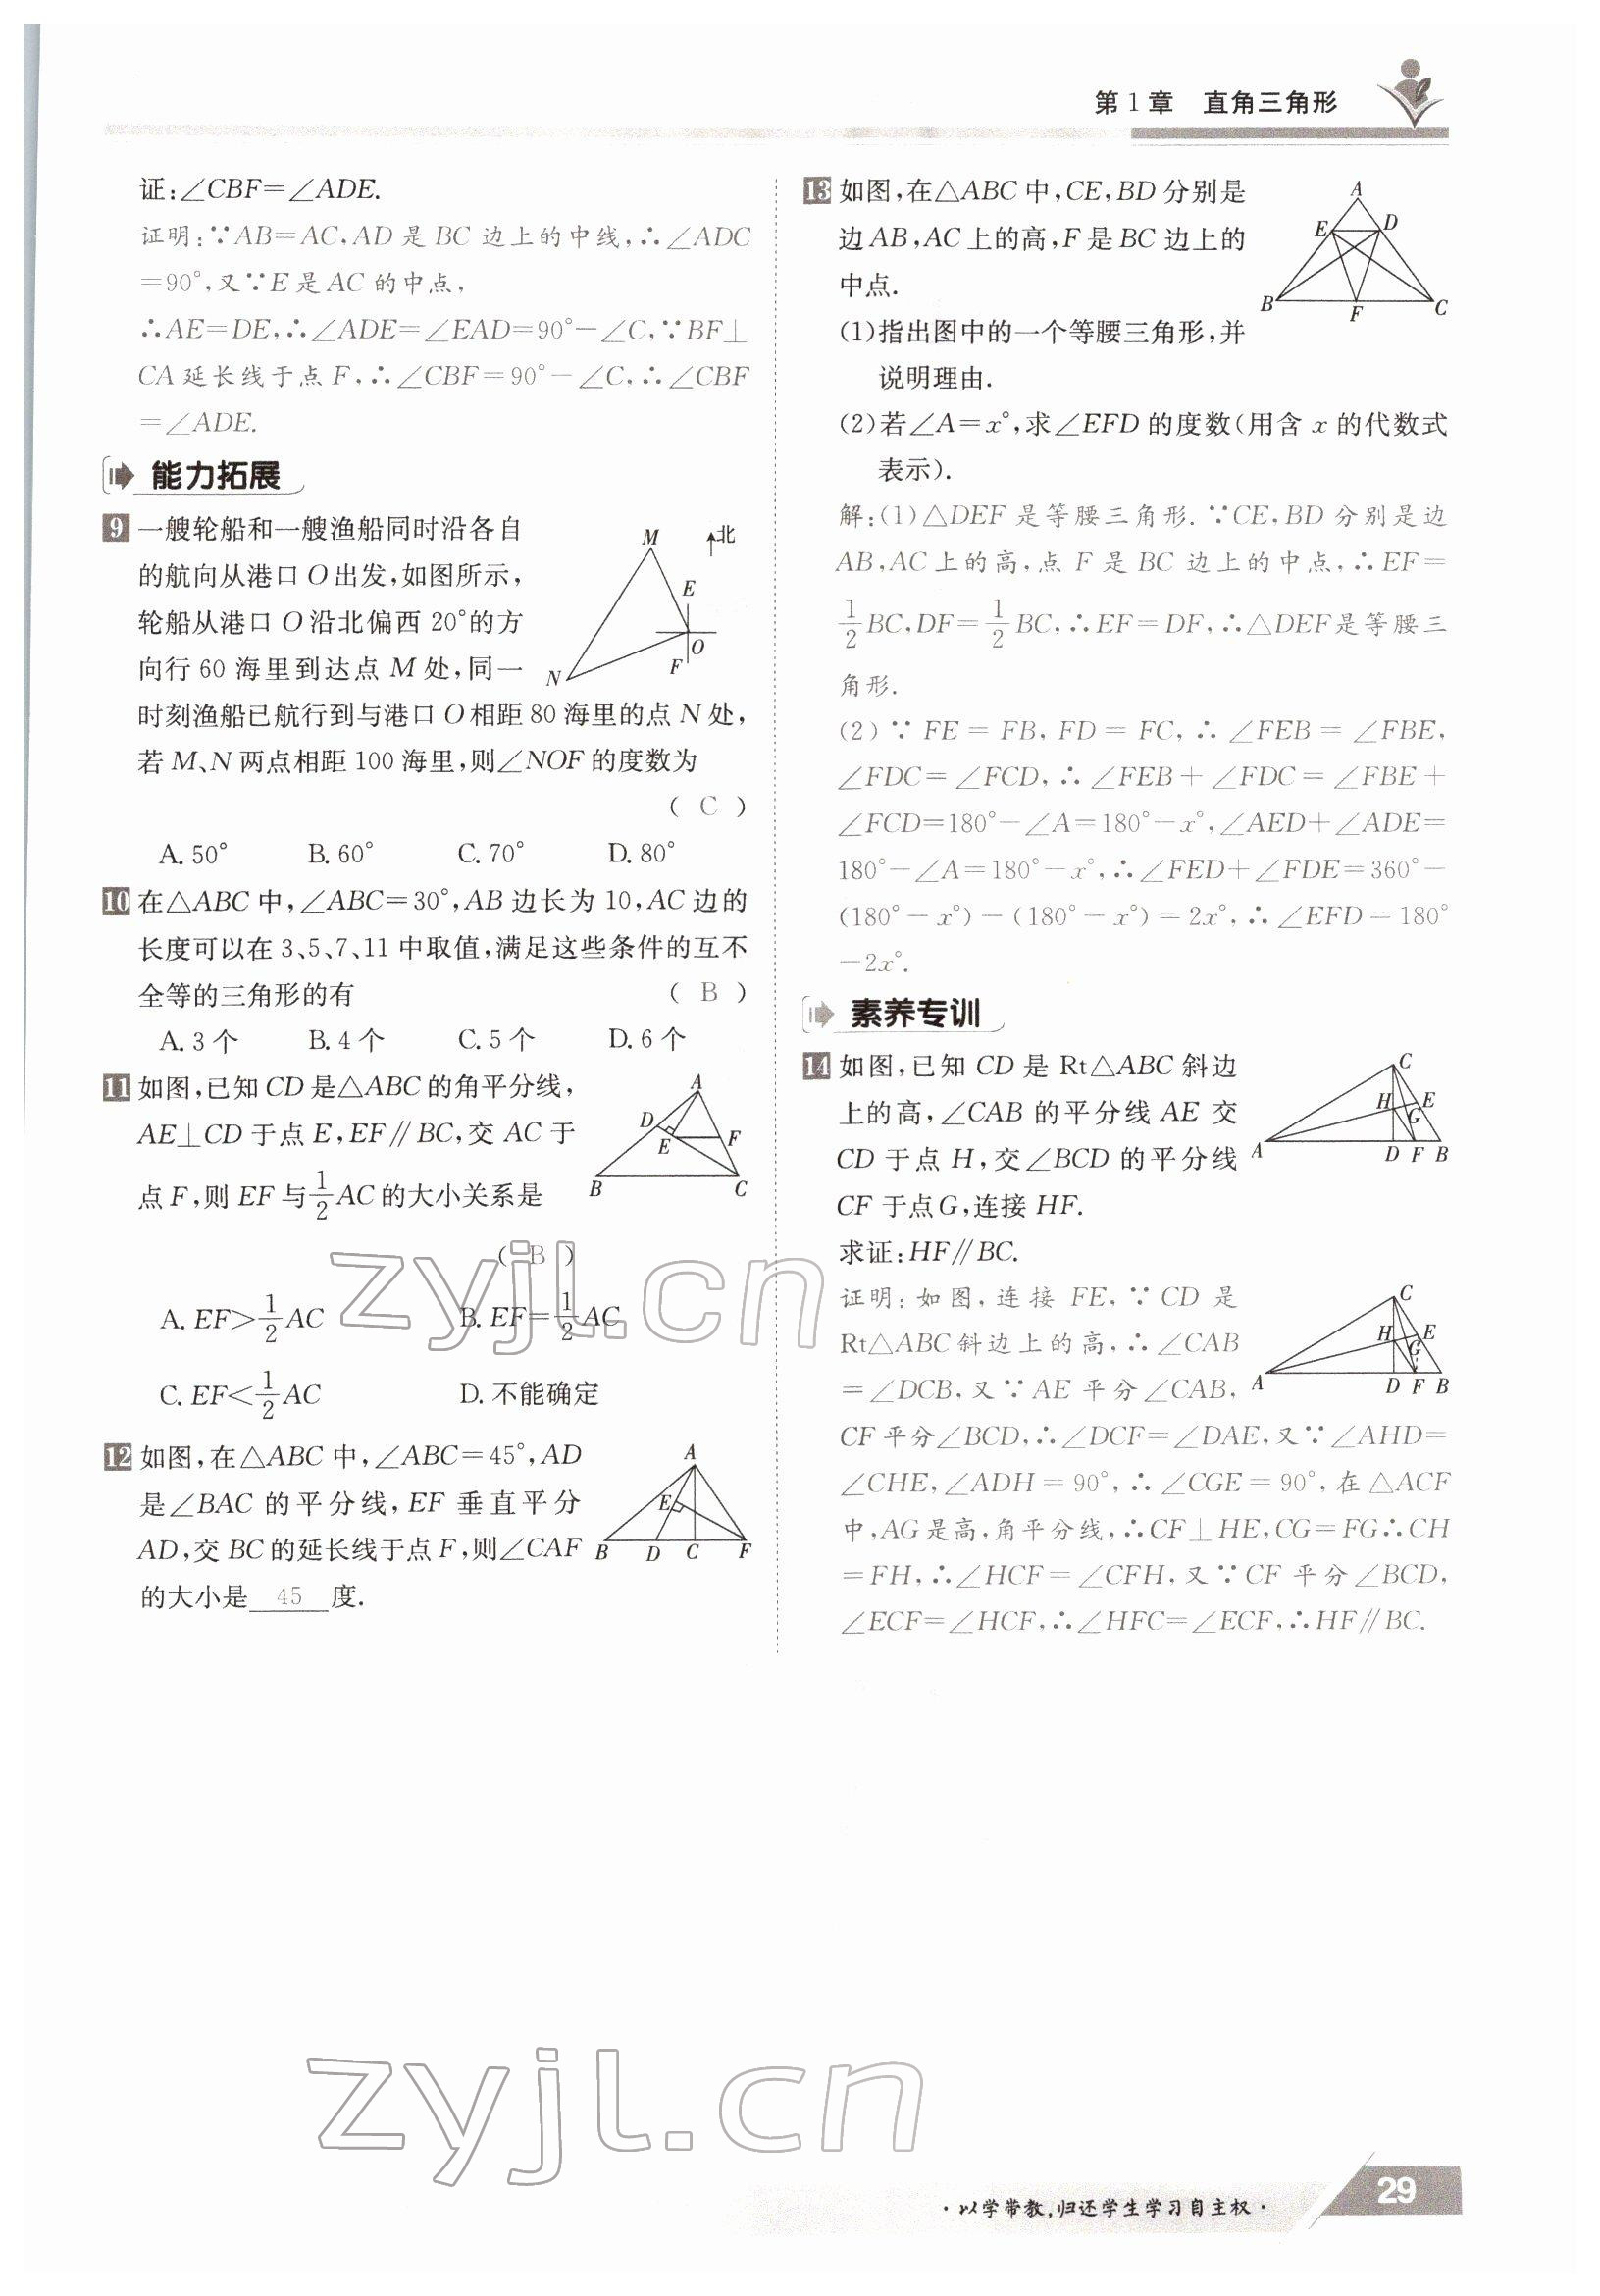 第1章 直角三角形
证:∠CBF=∠ADE.
证明:∵AB=AC,AD是BC边上的中线,∴∠ADC
=90°,又∵E是AC的中点,
∴AE=DE,∴∠ADE=∠EAD=90°-∠C,∵BF⊥
CA延长线于点F,∴∠CBF=90°-∠C,∴∠CBF
=∠ADE.
能力拓展
9 一艘轮船和一艘渔船同时沿各自
的航向从港口O出发,如图所示,
轮船从港口O沿北偏西20°的方
向行60海里到达点M处,同一
时刻渔船已航行到与港口O相距80海里的点N处,
若M、N两点相距100海里,则∠NOF的度数为
( C )
A.50° B.60° C.70° D.80°
M 北 E O F N
10 在△ABC中,∠ABC=30°,AB边长为10,AC边的
长度可以在3、5、7、11中取值,满足这些条件的互不
全等的三角形的有 ( B )
A.3个 B.4个 C.5个 D.6个
11 如图,已知CD是△ABC的角平分线,
AE⊥CD于点E,EF∥BC,交AC于
点F,则EF与1/2AC的大小关系是
( B )
A.EF>1/2AC B.EF=1/2AC
C.EF<1/2AC D.不能确定
A D E F B C
12 如图,在△ABC中,∠ABC=45°,AD
是∠BAC的平分线,EF垂直平分
AD,交BC的延长线于点F,则∠CAF
的大小是 45 度.
A E B D C F
13 如图,在△ABC中,CE,BD分别是
边AB,AC上的高,F是BC边上的
中点.
(1)指出图中的一个等腰三角形,并
说明理由.
(2)若∠A=x°,求∠EFD的度数(用含x的代数式
表示).
A E D B F C
解:(1)△DEF是等腰三角形.∵CE,BD分别是边
AB,AC上的高,点F是BC边上的中点,∴EF=
1/2BC,DF=1/2BC,∴EF=DF,∴△DEF是等腰三
角形.
(2)∵FE=FB,FD=FC,∴∠FEB=∠FBE,
∠FDC=∠FCD,∴∠FEB+∠FDC=∠FBE+
∠FCD=180°-∠A=180°-x°,∠AED+∠ADE=
180°-∠A=180°-x°,∴∠FED+∠FDE=360°-
(180°-x°)-(180°-x°)=2x°,∴∠EFD=180°
-2x°.
素养专训
14 如图,已知CD是Rt△ABC斜边
上的高,∠CAB的平分线AE交
CD于点H,交∠BCD的平分线
CF于点G,连接HF.
求证:HF∥BC.
C H E G A D F B
证明:如图,连接FE,∵CD是
Rt△ABC斜边上的高,∴∠CAB
=∠DCB,又∵AE平分∠CAB,
CF平分∠BCD,∴∠DCF=∠DAE,又∵∠AHD=
∠CHE,∠ADH=90°,∴∠CGE=90°,在△ACF
中,AG是高,角平分线,∴CF⊥HE,CG=FG∴CH
=FH,∴∠HCF=∠CFH,又∵CF平分∠BCD,
∠ECF=∠HCF,∴∠HFC=∠ECF,∴HF∥BC.
C H E G A D F B
zyjl.cn
zyjl.cn
·以学带教,归还学生学习自主权·
29